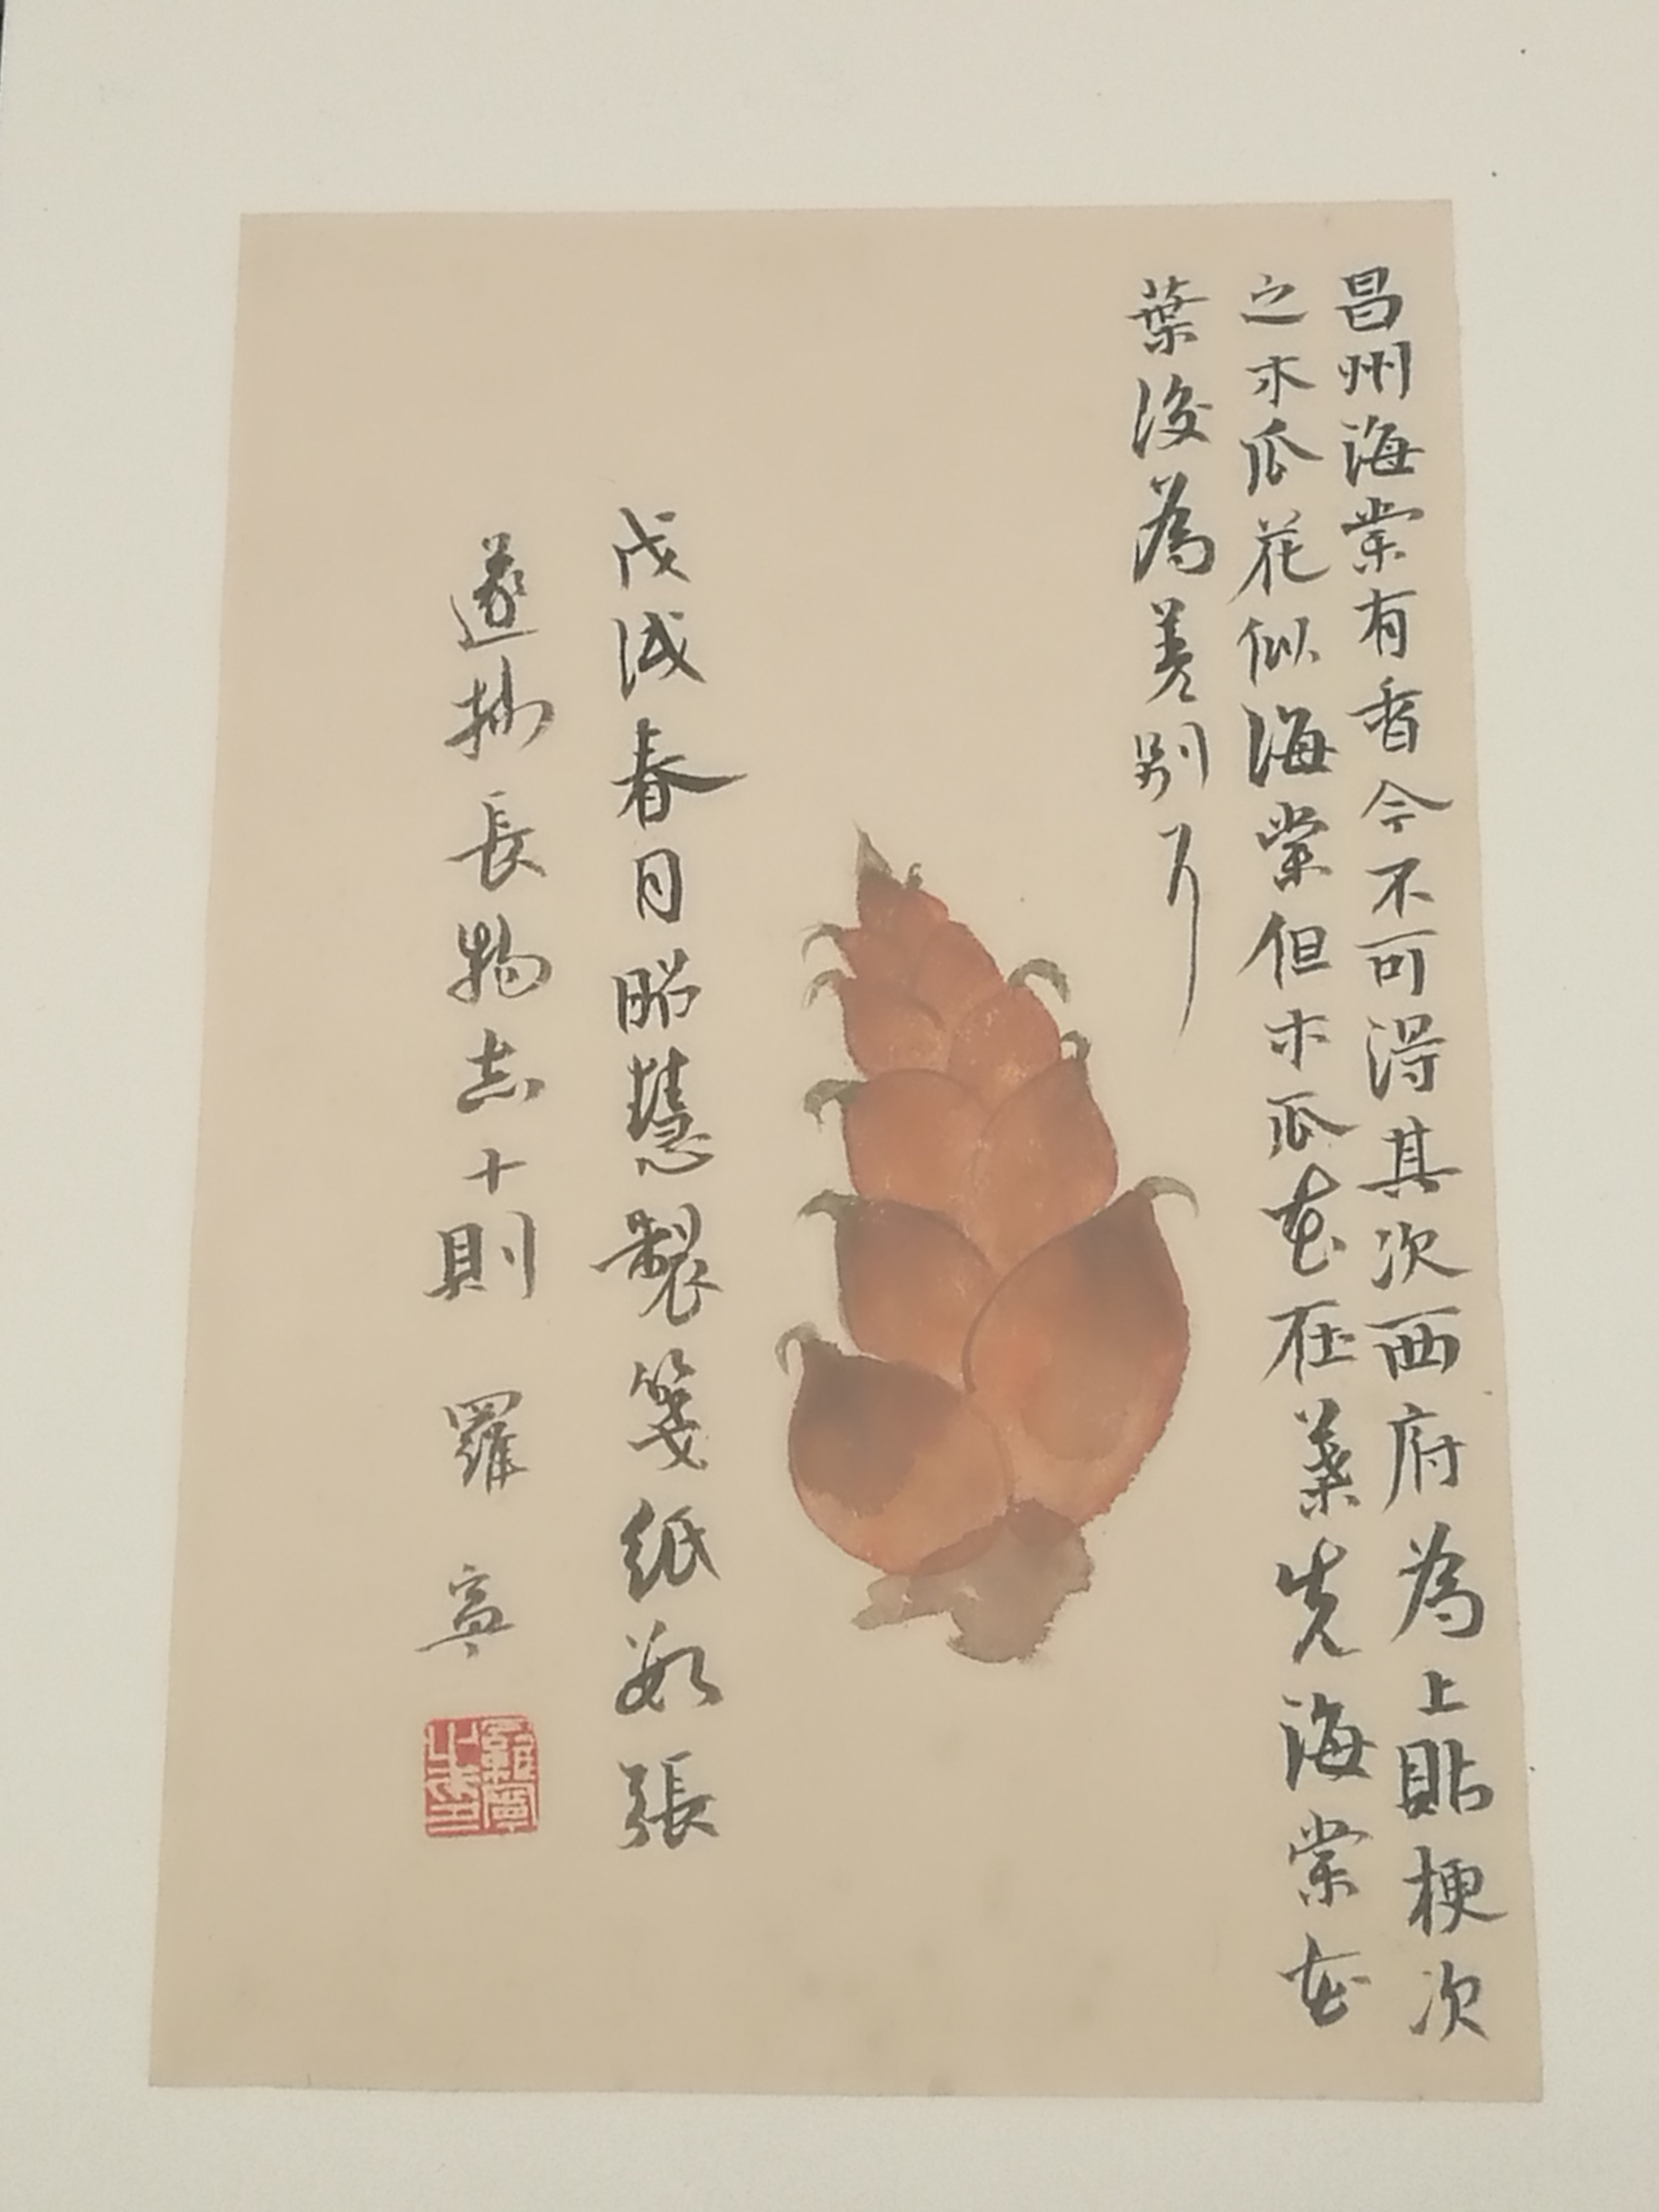 昌州海棠有香今不可得其次西府為上貼梗次
之木瓜花似海棠但木瓜花在葉先海棠花
葉後為差別耳
戊戌春日昭慧製箋紙數張
遂抄長物志十則 羅寧
羅寧之印